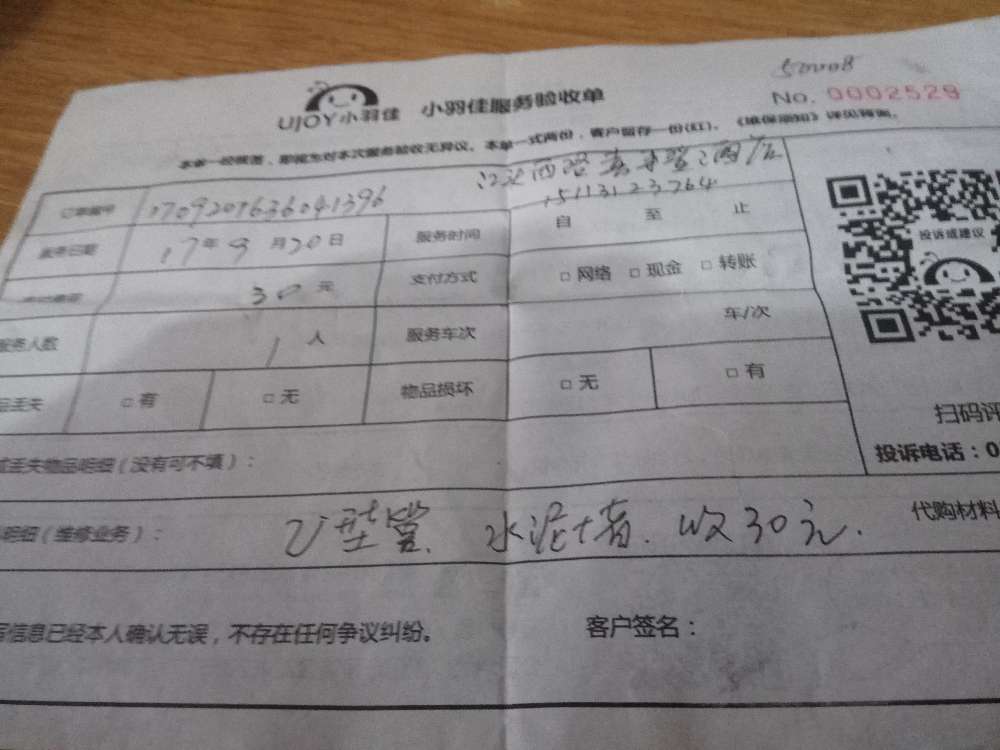 50008
UJOY小羽佳 小羽佳服务验收单 No. 0002529
本单一经核签，即视为对本次服务验收无异议。本单一式两份，客户留存一份(红)。
订单编号 1709201636041396
15113123764
服务日期 17年9月20日 服务时间 自 至 止
30元 支付方式 □ 网络 □ 现金 □ 转账
服务人数 1人 服务车次 车/次
品丢失 □ 有 □ 无 物品损坏 □ 无 □ 有
投诉或建议
扫码评
投诉电话：0
或丢失物品明细（没有可不填）：
明细（维修业务）： U型管. 水泥堵. 收30元. 代购材料
写信息已经本人确认无误，不存在任何争议纠纷。 客户签名：